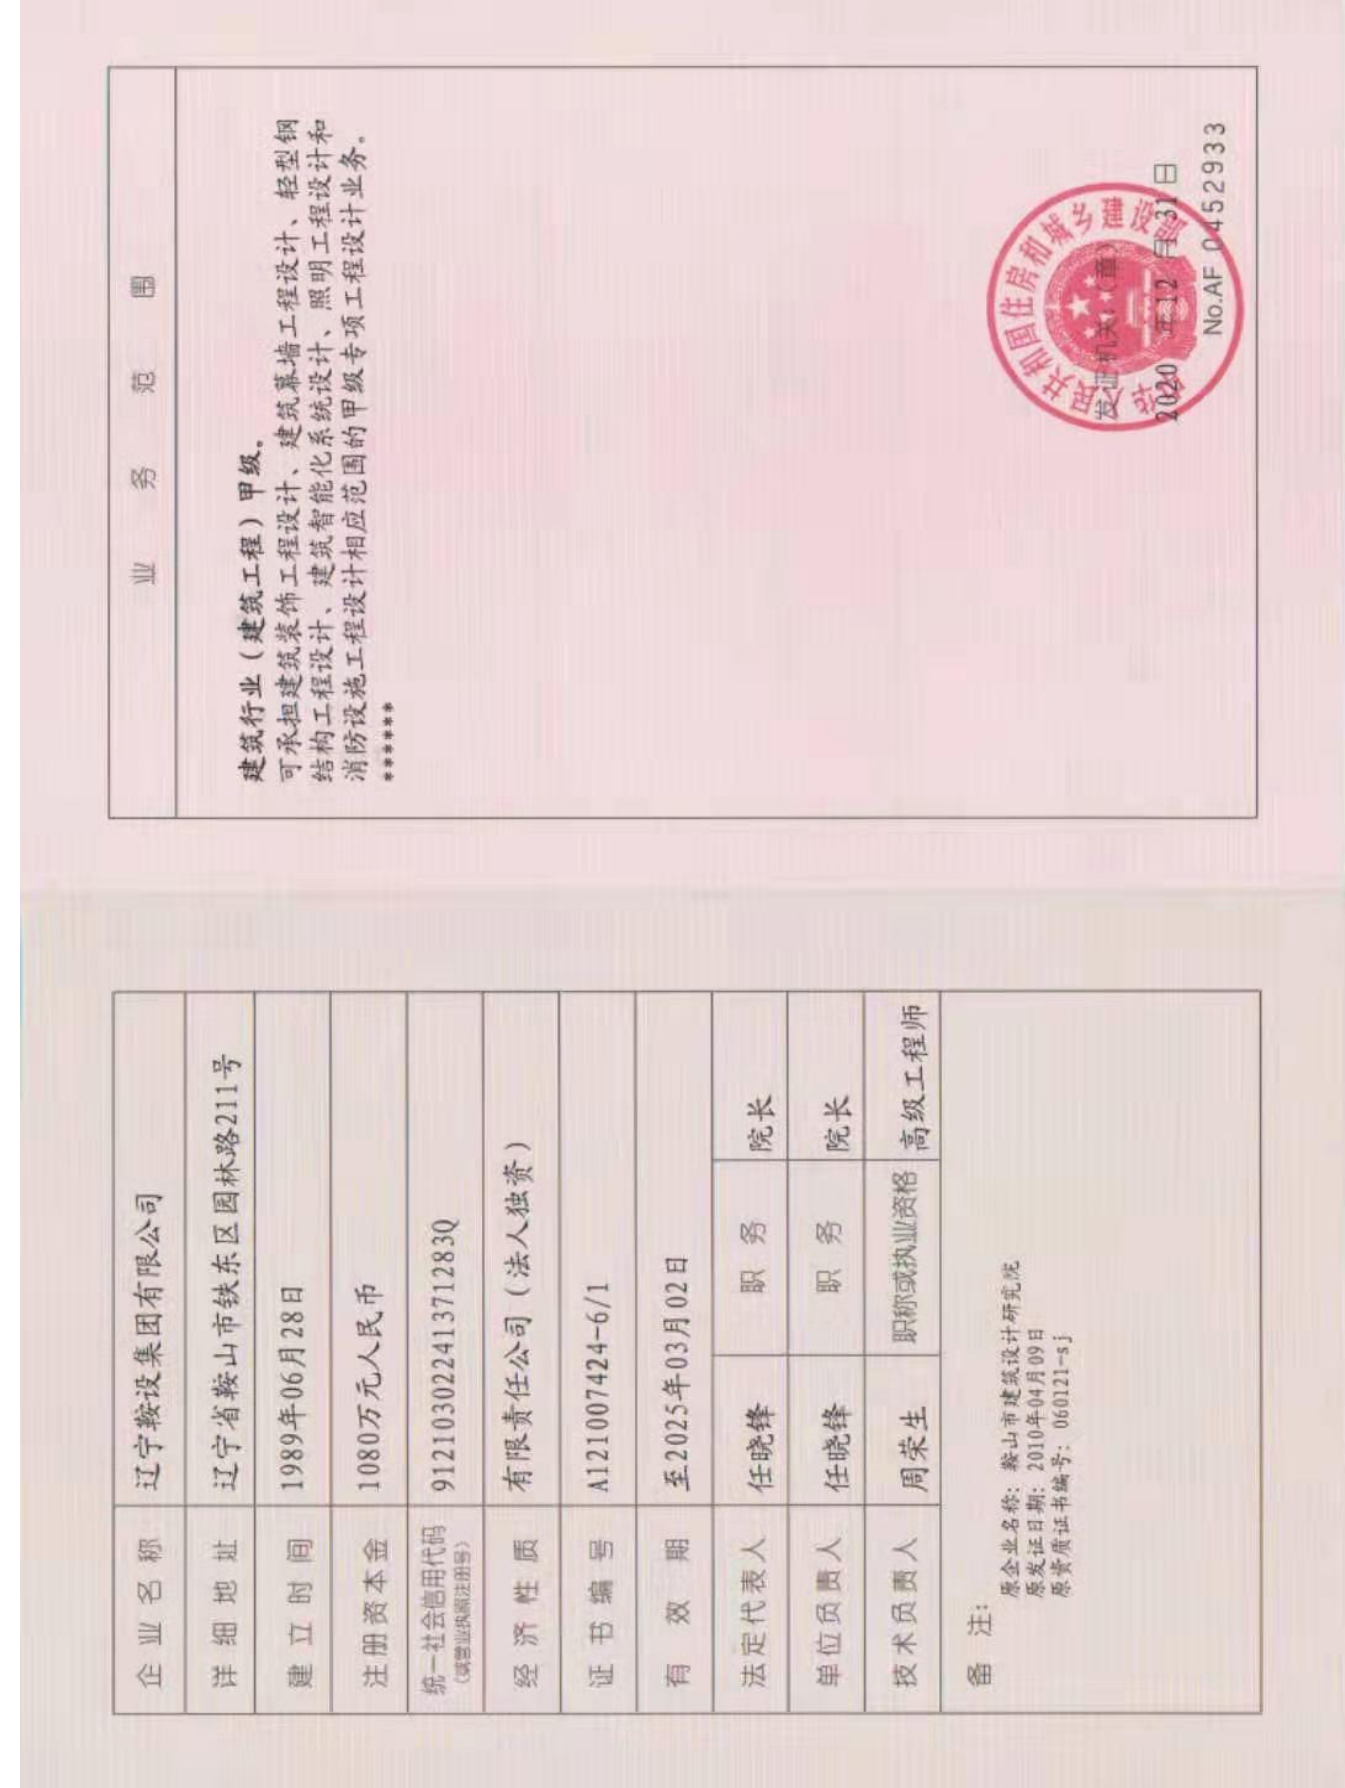 企业名称 辽宁鞍设集团有限公司
详细地址 辽宁省鞍山市铁东区园林路211号
建立时间 1989年06月28日
注册资本金 1080万元人民币
统一社会信用代码 91210302241371283Q
(或营业执照注册号)
经济性质 有限责任公司（法人独资）
证书编号 A121007424-6/1
有效期 至2025年03月02日
法定代表人 任晓锋 职务 院长
单位负责人 任晓锋 职务 院长
技术负责人 周荣生 职称或执业资格 高级工程师
备注:
原企业名称: 鞍山市建筑设计研究院
原发证日期: 2010年04月09日
原资质证书编号: 060121-sj
业务范围
建筑行业（建筑工程）甲级。
可承担建筑装饰工程设计、建筑幕墙工程设计、轻型钢
结构工程设计、建筑智能化系统设计、照明工程设计和
消防设施工程设计相应范围的甲级专项工程设计业务。
******
中华人民共和国住房和城乡建设部
发证机关:(章)
2020年12月31日
No.AF 0452933